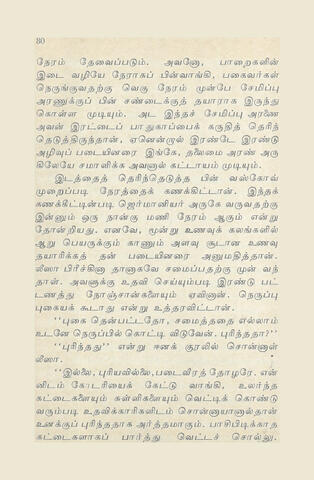 80
நேரம் தேவைப்படும். அவனோ, பாறைகளின்
இடை வழியே நேராகப் பின்வாங்கி, பகைவர்கள்
நெருங்குவதற்கு வெகு நேரம் முன்பே சேமிப்பு
அரணுக்குப் பின் சண்டைக்குத் தயாராக இருந்து
கொள்ள முடியும். அட இந்தச் சேமிப்பு அரணை
அவன் இரட்டைப் பாதுகாப்பைக் கருதித் தெரிந்
தெடுத்திருந்தான், ஏனென்றால் இரண்டே இரண்டு
அழிவுப் படையினரை இங்கே, தலைமை அரண் அரு
கிலேயே சமாளிக்க அவனால் கட்டாயம் முடியும்.
இடத்தைத் தெரிந்தெடுத்த பின் வஸ்கோவ்
முறைப்படி நேரத்தைக் கணக்கிட்டான். இந்தக்
கணக்கீட்டின்படி ஜெர்மானியர் அருகே வருவதற்கு
இன்னும் ஒரு நான்கு மணி நேரம் ஆகும் என்று
தோன்றியது. எனவே, மூன்று உணவுக் கலங்களில்
ஆறு பெயருக்கும் காணும் அளவு சூடான உணவு
தயாரிக்கத் தன் படையினரை அனுமதித்தான்.
லீஸா பிரீச்கினா தானாகவே சமைப்பதற்கு முன் வந்
தாள். அவளுக்கு உதவி செய்யும்படி இரண்டு பட்
டணத்து நோஞ்சான்களையும் ஏவினான். நெருப்பு
புகையக் கூடாது என்று உத்தரவிட்டான்.
"புகை தென்பட்டதோ, சமைத்ததை எல்லாம்
உடனே நெருப்பில் கொட்டி விடுவேன். புரிந்ததா?"
"புரிந்தது" என்று ஈனக் குரலில் சொன்னாள்
லீஸா.
"இல்லை, புரியவில்லை, படைவீரத் தோழரே. என்
னிடம் கோடரியைக் கேட்டு வாங்கி, உலர்ந்த
கட்டைகளையும் சுள்ளிகளையும் வெட்டிக் கொண்டு
வரும்படி உதவிக்காரிகளிடம் சொன்னாயானால்தான்
உனக்குப் புரிந்ததாக அர்த்தமாகும். பாசிபிடிக்காத
கட்டைகளாகப் பார்த்து வெட்டச் சொல்லு.